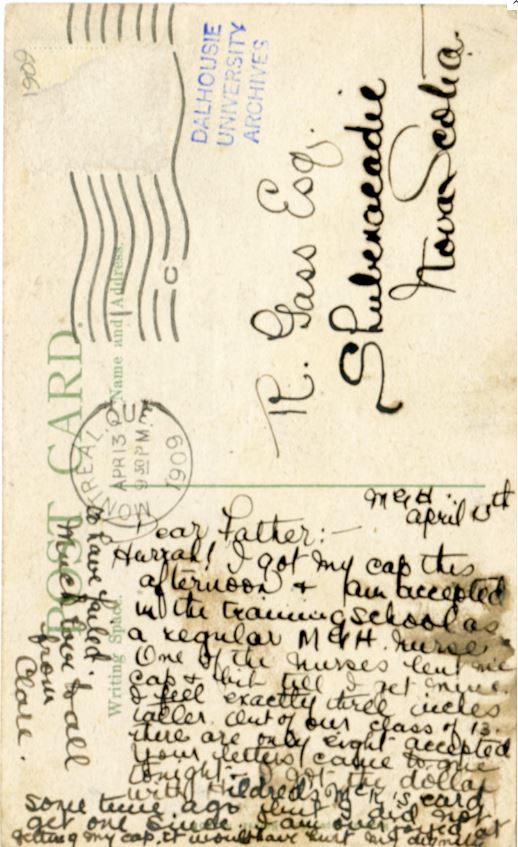 1909
DALHOUSIE
UNIVERSITY
ARCHIVES
POST CARD.
Name and Address.
Writing Space.
MONTREAL, QUE
APR 13
9 30 PM
1909
C
R. Gass Esq.
Shubenacadie
Nova Scotia.
M G H.
April 13th
Dear Father:—
Hurrah! I got my cap this
afternoon & am accepted
in the training school as
a regular M G H. nurse
One of the nurses lent me
cap & bib till I get mine.
I feel exactly three inches
taller. Out of our class of 13.
there are only eight accepted
Your letters came to me
tonight. I got the dollar
with Hildred McK's card
some time ago but I did not
get one since. I am overjoyed at
getting my cap, it would have hurt my dignity
to have failed
Much love to all
from
Clare.